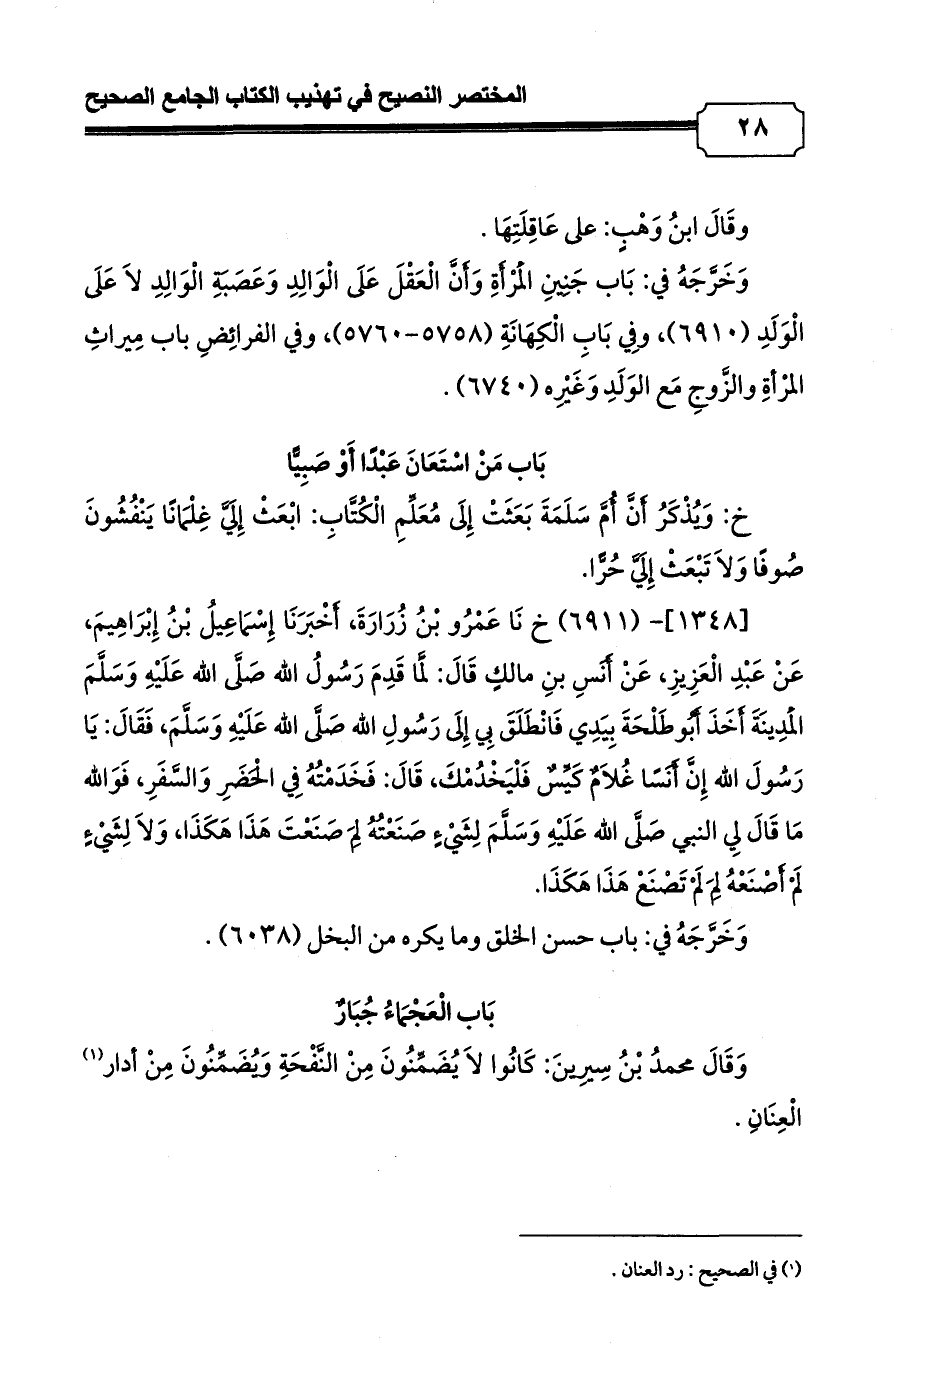 المختصر النصيح في تهذيب الكتاب الجامع الصحيح
٢٨
وقَالَ ابنُ وَهْبٍ: على عَاقِلَتِهَا .
وَخَرَّجَهُ في: بَاب جَنِينِ المَرْأَةِ وَأَنَّ الْعَقْلَ عَلَى الْوَالِدِ وَعَصَبَةِ الْوَالِدِ لاَ عَلَى
الْوَلَدِ (٦٩١٠)، وفِي بَابِ الْكِهَانَةِ (٥٧٥٨-٥٧٦٠)، وفي الفرائضِ باب مِيراثِ
المَرْأةِ والزَّوجِ مَع الوَلَدِ وَغَيْرِه (٦٧٤٠) .
بَاب مَنْ اسْتَعَانَ عَبْدًا أَوْ صَبِيًّا
خ: وَيُذْكَرُ أَنَّ أُمَّ سَلَمَةَ بَعَثَتْ إِلَى مُعَلِّمِ الْكُتَّابِ: ابْعَثْ إِلَيَّ غِلْمَانًا يَنْفُشُونَ
صُوفًا وَلاَ تَبْعَثْ إِلَيَّ حُرًّا.
[١٣٤٨]- (٦٩١١) خ نَا عَمْرُو بْنُ زُرَارَةَ، أَخْبَرَنَا إِسْمَاعِيلُ بْنُ إِبْرَاهِيمَ،
عَنْ عَبْدِ الْعَزِيزِ، عَنْ أَنَسِ بنِ مالكٍ قَالَ: لمَّا قَدِمَ رَسُولُ الله صَلَّى الله عَلَيْهِ وَسَلَّمَ
المَدِينَةَ أَخَذَ أَبُو طَلْحَةَ بِيَدِي فَانْطَلَقَ بِي إِلَى رَسُولِ الله صَلَّى الله عَلَيْهِ وَسَلَّمَ، فَقَالَ: يَا
رَسُولَ الله إِنَّ أَنَسًا غُلاَمٌ كَيِّسٌ فَلْيَخْدُمْكَ، قَالَ: فَخَدَمْتُهُ فِي الْحَضَرِ وَالسَّفَرِ، فَوَالله
مَا قَالَ لِي النبي صَلَّى الله عَلَيْهِ وَسَلَّمَ لِشَيْءٍ صَنَعْتُهُ لِمَ صَنَعْتَ هَذَا هَكَذَا، وَلاَ لِشَيْءٍ
لَمْ أَصْنَعْهُ لِمَ لَمْ تَصْنَعْ هَذَا هَكَذَا.
وَخَرَّجَهُ في: باب حسن الخلق وما يكره من البخل (٦٠٣٨) .
بَاب الْعَجْمَاءُ جُبَارٌ
وَقَالَ محمدُ بْنُ سِيرِينَ: كَانُوا لاَ يُضَمِّنُونَ مِنْ النَّفْحَةِ وَيُضَمِّنُونَ مِنْ أدار(١)
الْعِنَانِ .
(١) في الصحيح : رد العنان .